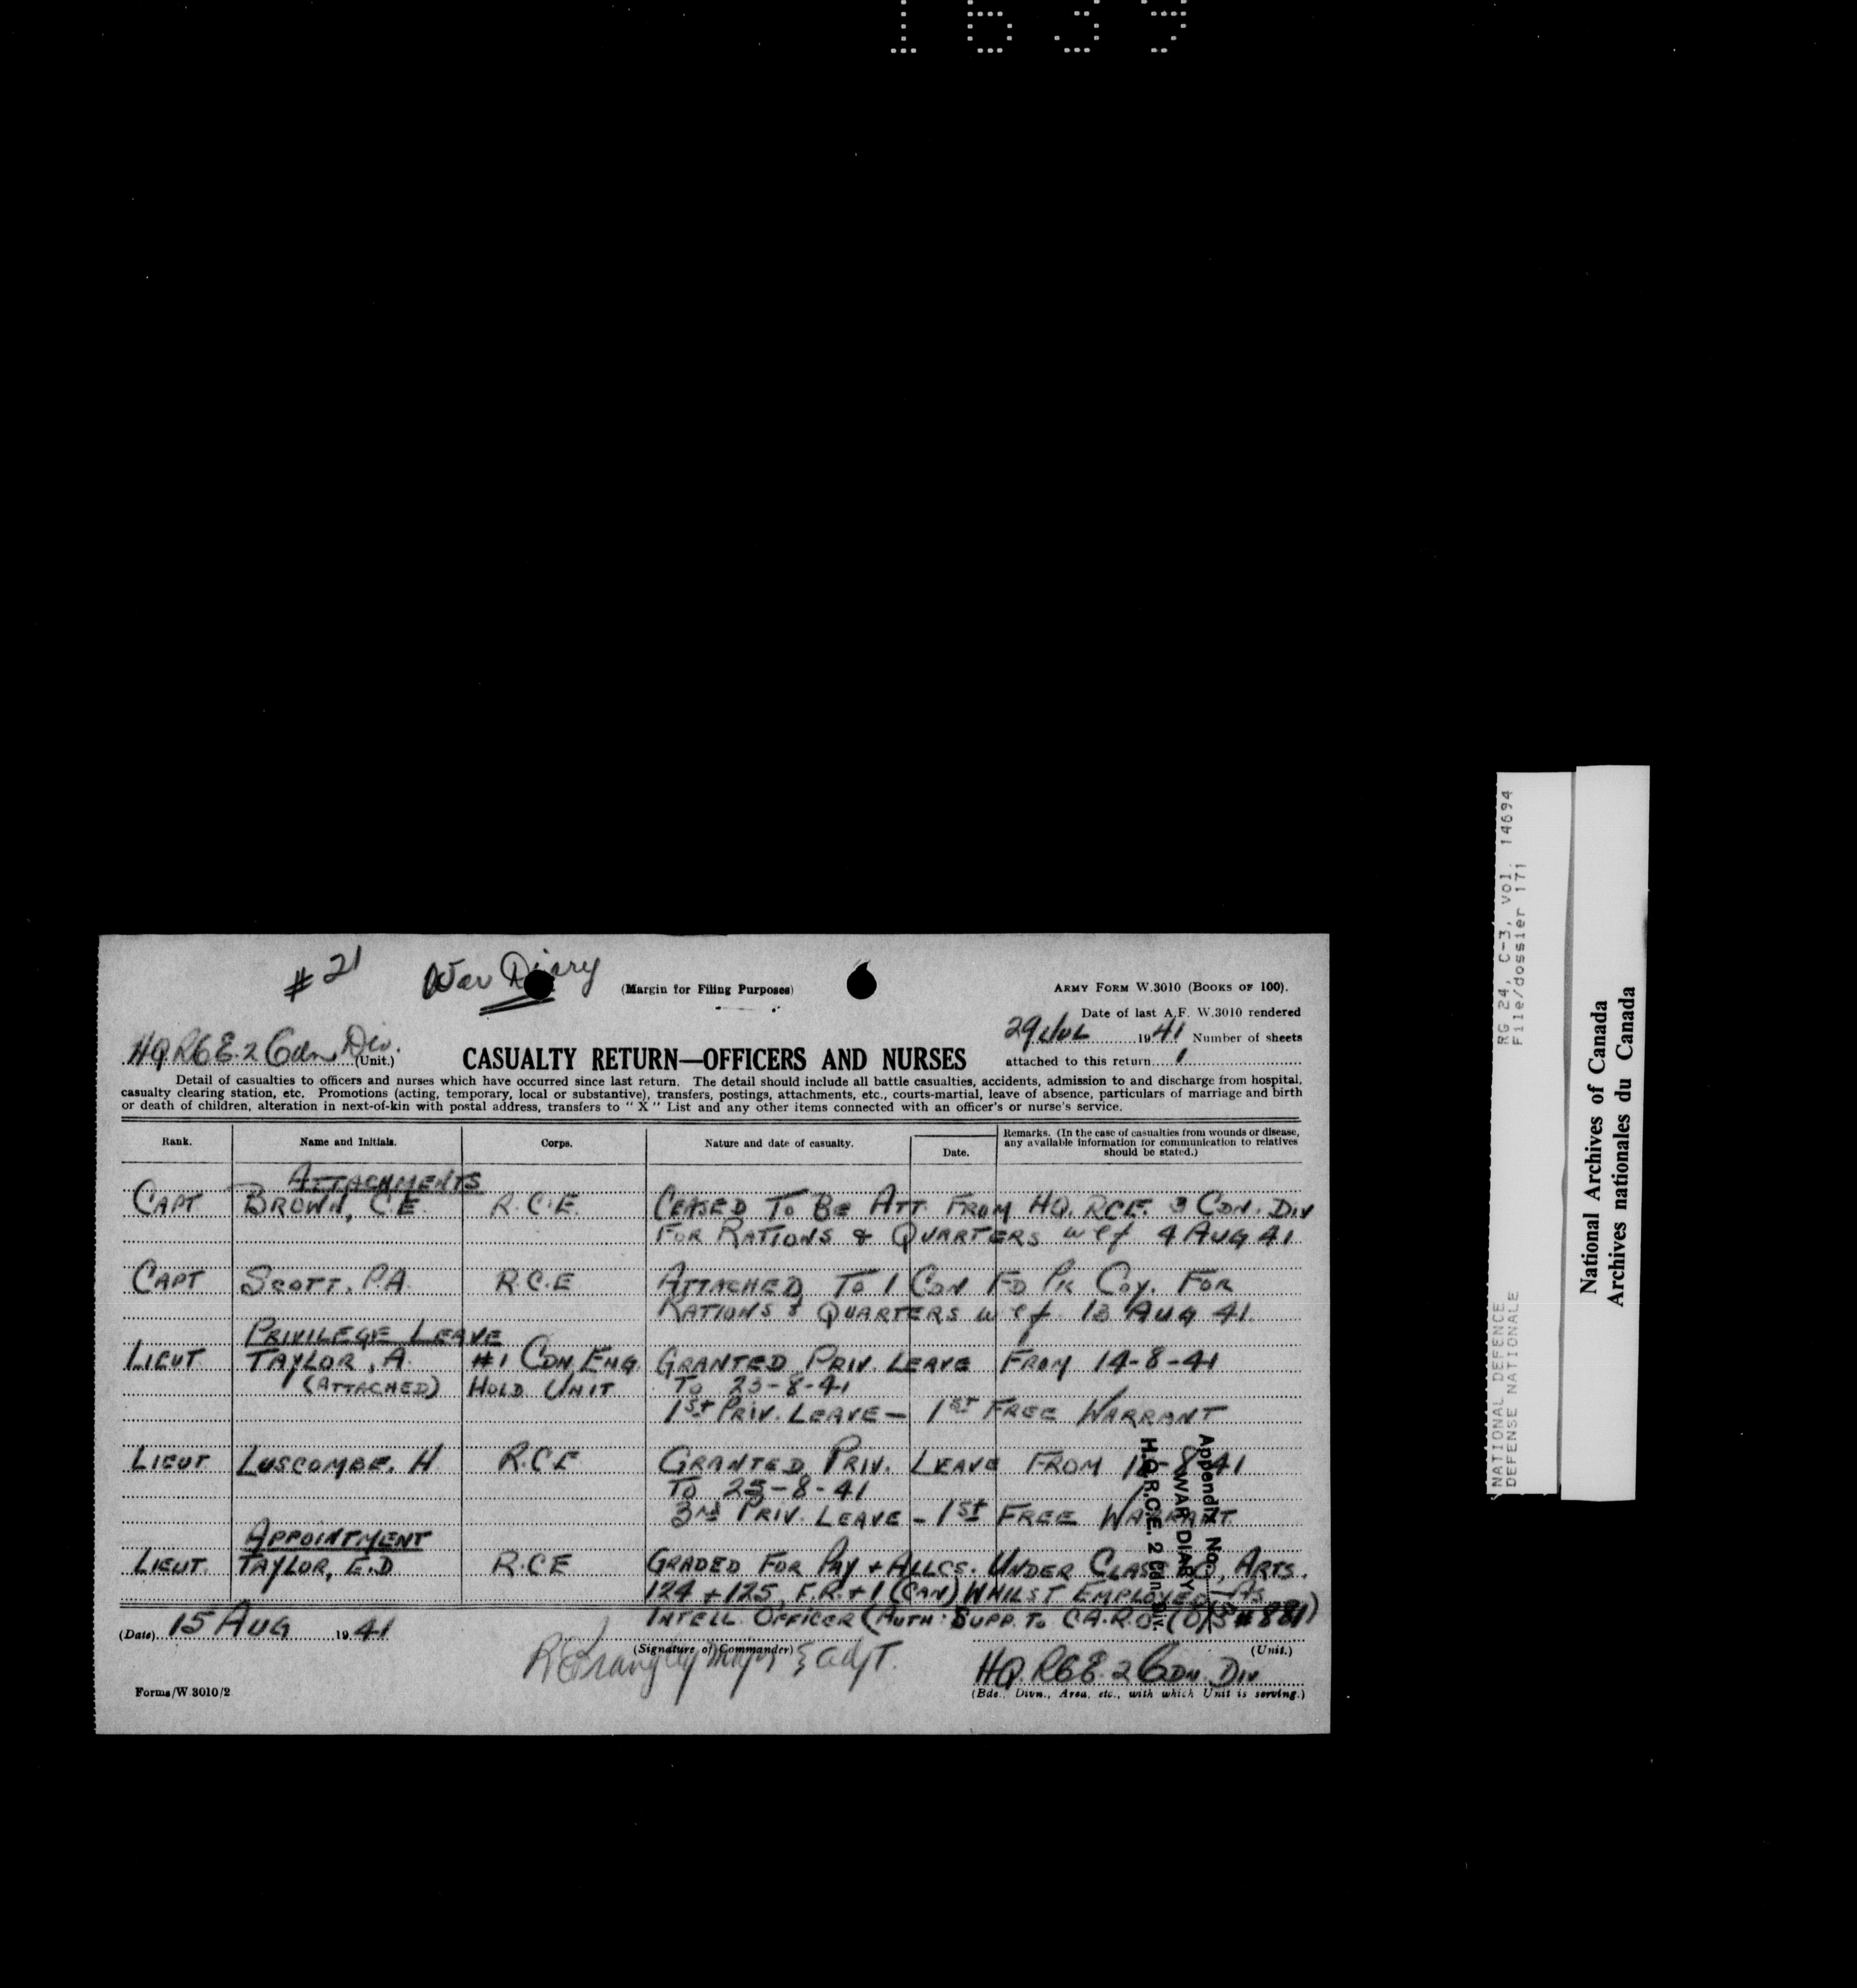 1639
# 21
War Diary
(Margin for Filing Purposes)
ARMY FORM W.3010 (BOOKS OF 100).
Date of last A.F. W.3010 rendered
29 JUL 1941 Number of sheets
attached to this return....1
HQ RCE 2 Cdn Div. (Unit.)
CASUALTY RETURN—OFFICERS AND NURSES
Detail of casualties to officers and nurses which have occurred since last return. The detail should include all battle casualties, accidents, admission to and discharge from hospital,
casualty clearing station, etc. Promotions (acting, temporary, local or substantive), transfers, postings, attachments, etc., courts-martial, leave of absence, particulars of marriage and birth
or death of children, alteration in next-of-kin with postal address, transfers to “ X ” List and any other items connected with an officer's or nurse's service.
Rank. Name and Initials. Corps. Nature and date of casualty. Date. Remarks. (In the case of casualties from wounds or disease,
any available information for communication to relatives
should be stated.)
ATTACHMENTS
CAPT BROWN, C.E. R.C.E. CEASED TO BE ATT FROM HQ. RCE. 3 CDN. DIV
FOR RATIONS & QUARTERS wef 4 AUG 41
CAPT SCOTT, P.A. R.C.E ATTACHED TO 1 CDN FD PK COY. FOR
RATIONS & QUARTERS wef 13 AUG 41.
PRIVILEGE LEAVE
LIEUT TAYLOR, A. #1 CDN. ENG. GRANTED PRIV. LEAVE FROM 14-8-41
(ATTACHED) HOLD UNIT TO 23-8-41
1ST PRIV. LEAVE — 1ST FREE WARRANT
LIEUT LUSCOMBE, H R.C.E GRANTED PRIV. LEAVE FROM -8-41
TO 25-8-41
3RD PRIV. LEAVE - 1ST FREE WARRANT
APPOINTMENT
LIEUT. TAYLOR, E.D R.C.E GRADED FOR PAY + ALLCS. UNDER CLASS , ARTS.
124 + 125, F.R. + I (CAN) WHILST EMPLOYED AS
INTELL. OFFICER (AUTH: SUPP. TO C.A.R.O. (O/S # 881)
Appendix No.
WAR DIARY
H.Q.R.C.E. 2 Cdn Div.
(Date) 15 AUG 1941
(Signature of Commander) Major & Adjt.
(Unit.)
HQ. RCE. 2 CDN. DIV
(Bde., Divn., Area, etc., with which Unit is serving.)
Forms/W 3010/2
RG 24, C-3, vol. 14694
File/dossier 171
NATIONAL DEFENCE
DEFENSE NATIONALE
National Archives of Canada
Archives nationales du Canada